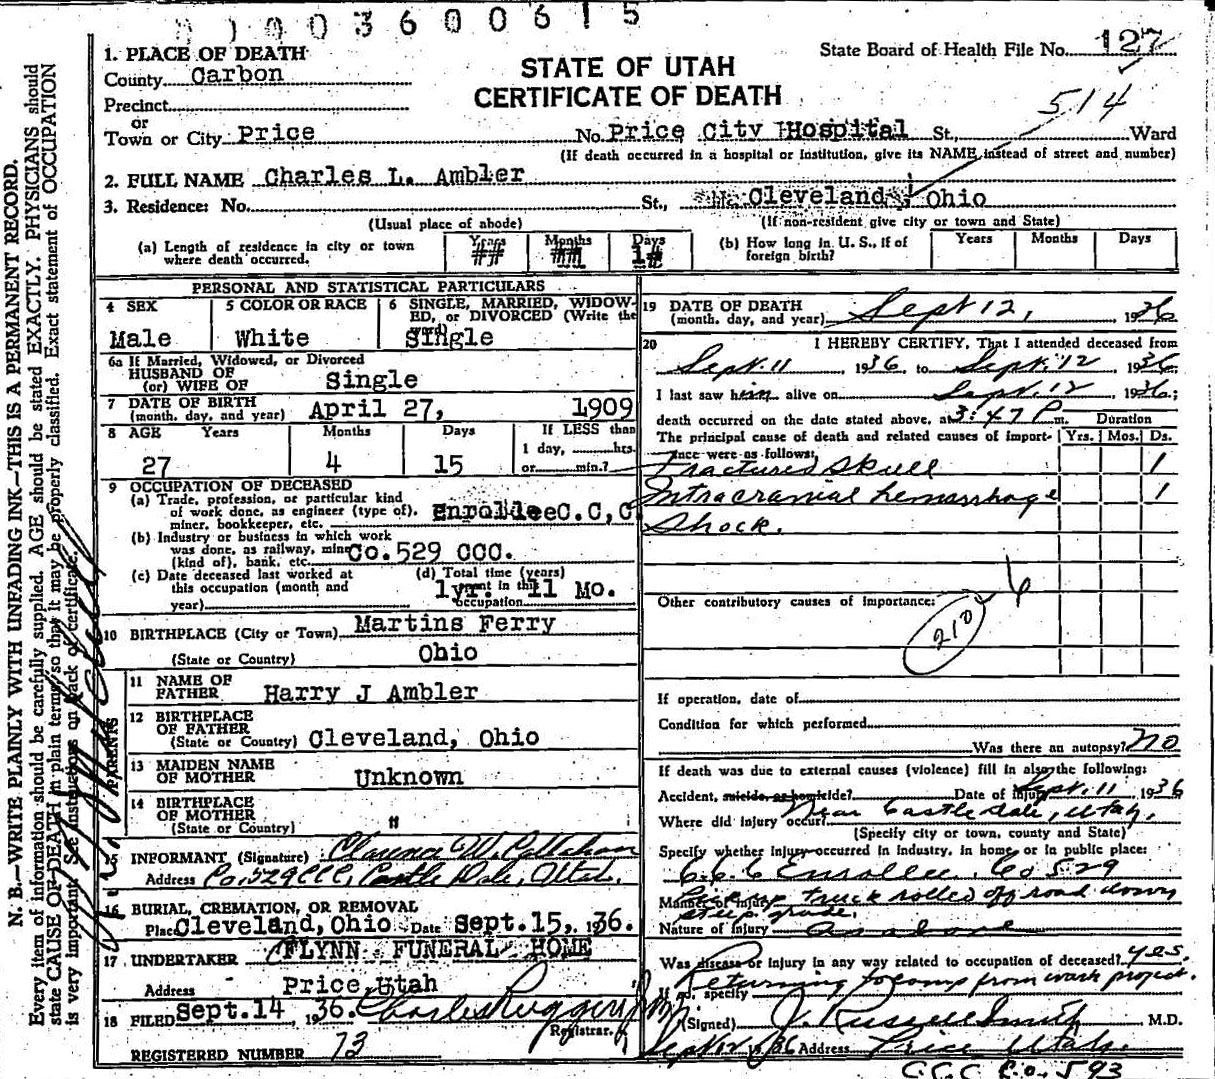 0 1 0 0 3 6 0 0 6 1 5
1. PLACE OF DEATH
State Board of Health File No. 127
County Carbon
STATE OF UTAH
CERTIFICATE OF DEATH
Precinct
514
or
Town or City Price No. Price City Hospital St. Ward
(If death occurred in a hospital or institution, give its NAME instead of street and number)
2. FULL NAME Charles L. Ambler
3. Residence: No. St., Cleveland, Ohio
(Usual place of abode) (If non-resident give city or town and State)
(a) Length of residence in city or town where death occurred. Years ## Months ## Days 1#
(b) How long in U. S., if of foreign birth? Years Months Days
PERSONAL AND STATISTICAL PARTICULARS
4 SEX Male
5 COLOR OR RACE White
6 SINGLE, MARRIED, WIDOWED, or DIVORCED (Write the word) Single
6a If Married, Widowed, or Divorced
HUSBAND OF
(or) WIFE OF Single
7 DATE OF BIRTH
(month, day, and year) April 27, 1909
8 AGE Years Months Days If LESS than
27 4 15 1 day, hrs.
or min.?
9 OCCUPATION OF DECEASED
(a) Trade, profession, or particular kind
of work done, as engineer (type of),
miner, bookkeeper, etc. Enrollee C.C,C
(b) Industry or business in which work
was done, as railway, mine
(kind of), bank, etc. Co.529 CCC.
(c) Date deceased last worked at
this occupation (month and
year)
(d) Total time (years)
spent in this
occupation 1yr. 11 Mo.
10 BIRTHPLACE (City or Town) Martins Ferry
(State or Country) Ohio
PARENTS
11 NAME OF
FATHER Harry J Ambler
12 BIRTHPLACE
OF FATHER
(State or Country) Cleveland, Ohio
13 MAIDEN NAME
OF MOTHER Unknown
14 BIRTHPLACE
OF MOTHER
(State or Country) "
15 INFORMANT (Signature) Clarence W. Callahan
Address Co. 529 CCC, Castle Dale, Utah.
16 BURIAL, CREMATION, OR REMOVAL
Place Cleveland, Ohio Date Sept.15, 1936.
17 UNDERTAKER FLYNN FUNERAL HOME
Address Price, Utah
18 FILED Sept.14, 1936. Charles Ruggeri
Registrar.
REGISTERED NUMBER 73
19 DATE OF DEATH
(month, day, and year) Sept 12, 1936
20 I HEREBY CERTIFY, That I attended deceased from
Sept. 11, 1936, to Sept. 12 1936.
I last saw him alive on Sept. 12, 1936;
death occurred on the date stated above, at 3:47 P m. Duration
The principal cause of death and related causes of importance were as follows: Yrs. Mos. Ds.
Fractured Skull 1
Intracranial hemorrhage 1
Shock.
Other contributory causes of importance:
210
If operation, date of
Condition for which performed
Was there an autopsy? no
If death was due to external causes (violence) fill in also the following:
Accident, suicide, or homicide? Date of injury Sept. 11 1936
Where did injury occur? Near Castle Dale, Utah.
(Specify city or town, county and State)
Specify whether injury occurred in industry, in home, or in public place:
C.C.C Enrollee. Co 529
Manner of injury truck rolled off road down
steep grade.
Nature of injury as above
Was disease or injury in any way related to occupation of deceased? yes.
Returning to camp from work project.
If so, specify
(Signed) J. Russell Smith M.D.
Sept 12 1936 Address Price Utah.
C.C.C Co. 593
N. B.—WRITE PLAINLY WITH UNFADING INK—THIS IS A PERMANENT RECORD.
Every item of information should be carefully supplied. AGE should be stated EXACTLY. PHYSICIANS should
state CAUSE OF DEATH in plain terms, so that it may be properly classified. Exact statement of OCCUPATION
is very important. See instructions on back of certificate.